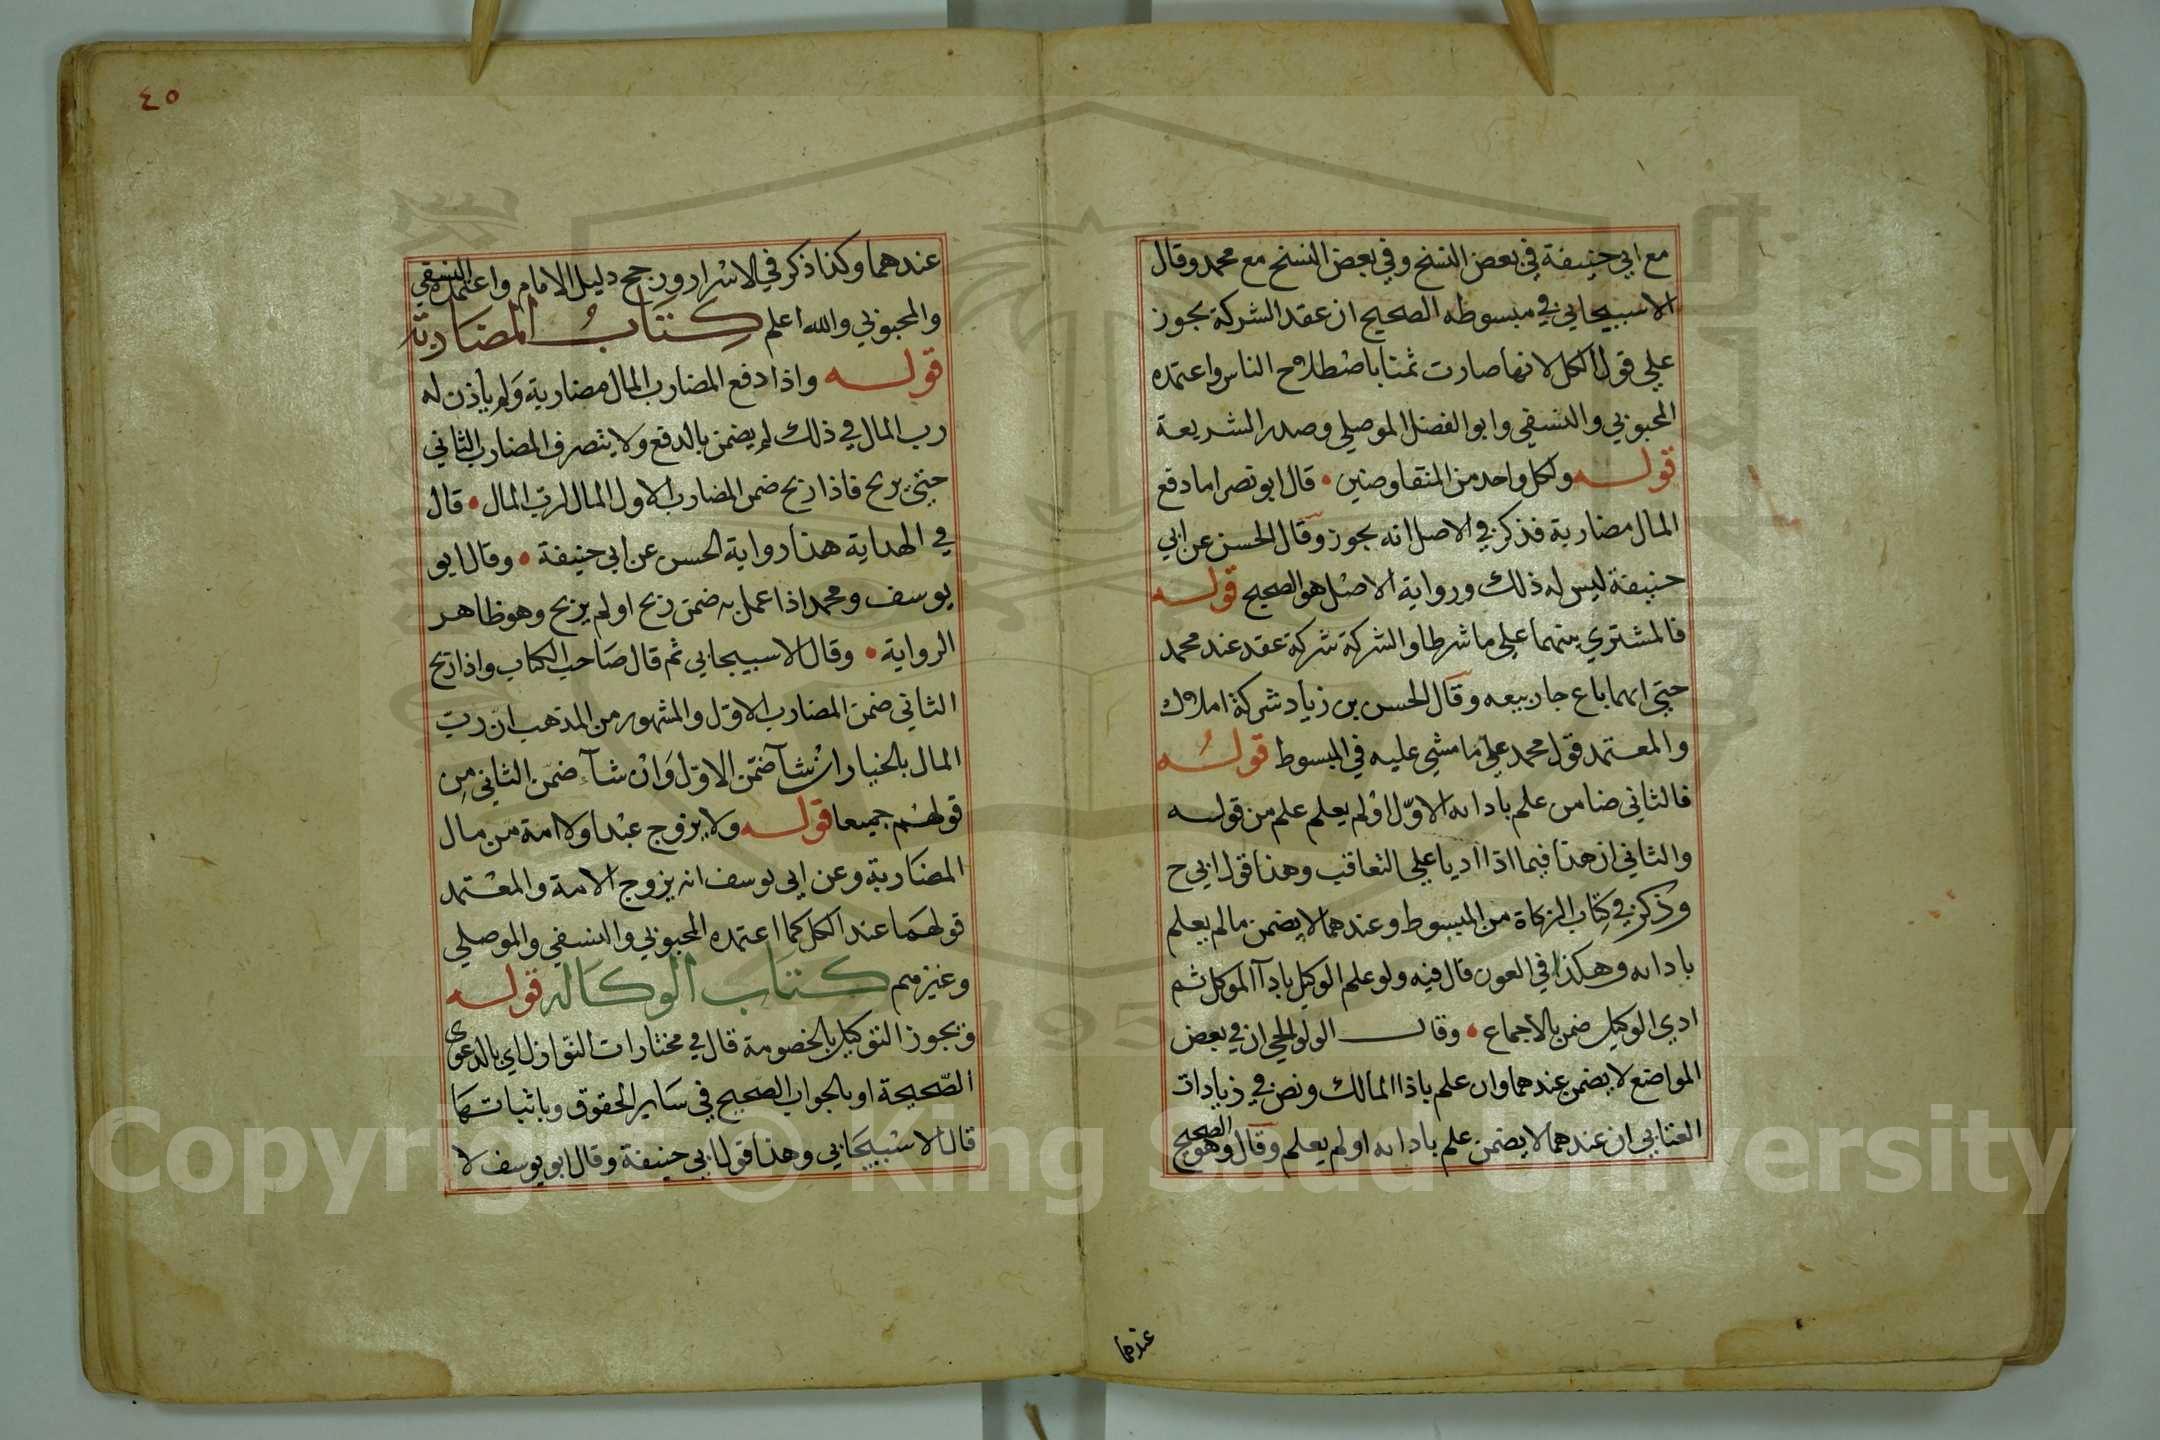 مع ابي حنيفة في بعض النسخ وفي بعض النسخ مع محمد وقال
الاسبيجابي في مبسوطه الصحيح ان عقد الشركة يجوز
علي قول الكل لانها صارت ثمنا باصطلاح الناس واعتمده
المحبوبي والنسفي وابو الفضل الموصلي وصدر الشريعة
قوله ولكل واحد من المتفاوضين • قال ابو نصر اما دفع
المال مضاربة فذكر في الاصل انه يجوز وقال الحسن عن ابي
حنيفة ليس له ذلك ورواية الاصل هو الصحيح قوله
فالمشتري بينهما علي ما شرطا والشركة شركة عقد عند محمد
حتي ايهما باع جاز بيعه وقال الحسن بن زياد شركة املاك
والمعتمد قول محمد علي ما مشي عليه في المبسوط قوله
فالثاني ضامن علم باداىه الاول او لم يعلم علم من قوله
والثاني ان هذا فيما اذا اديا علي التعاقب وهذا قول ابي ح
وذكر في كتاب الزكاة من المبسوط وعندهما لا يضمن ما لم يعلم
باداىه وهكذا في العون قال فيه ولو علم الوكيل بادآ الموكل ثم
ادي الوكيل ضمن بالاجماع • وقال الولوالجي ان في بعض
المواضع لا يضمن عندهما وان علم باذا المالك ونص في زيادات
العتابي ان عندهما لا يضمن علم باداىه او لم يعلم وقال وهو الصحيح
عندهما
٤٥
عندهما وكذا ذكر في الاسرار ورجح دليل الامام واعتمده النسفي
والمحبوبي والله اعلم كتاب المضاربة
قوله واذا دفع المضارب المال مضاربة ولم ياذن له
رب المال في ذلك لم يضمن بالدفع ولا يتصرف المضارب الثاني
حتي يربح فاذا ربح ضمن المضارب الاول المال لرب المال • قال
في الهداية هذا رواية الحسن عن ابي حنيفة • وقال ابو
يوسف ومحمد اذا عمل به ضمن ربح او لم يربح وهو ظاهر
الرواية • وقال الاسبيجابي ثم قال صاحب الكتاب واذا ربح
الثاني ضمن المضارب الاول والمشهور من المذهب ان رب
المال بالخيار ان شآ ضمن الاول وان شآء ضمن الثاني من
قولهم جميعا قوله ولا يزوج عبدا ولا امة من مال
المضاربة وعن ابي يوسف انه يزوج الامة والمعتمد
قولهما عند الكل كما اعتمده المحبوبي والنسفي والموصلي
وغيرهم كتاب الوكاله قوله
ويجوز التوكيل بالخصومة قال في مختارات النوازل اي بالدعوى
الصحيحة او بالجواب الصحيح في ساير الحقوق وباثباتها
قال الاسبيجابي وهذا قول ابي حنيفة وقال ابو يوسف لا
Copyright © King Saud University